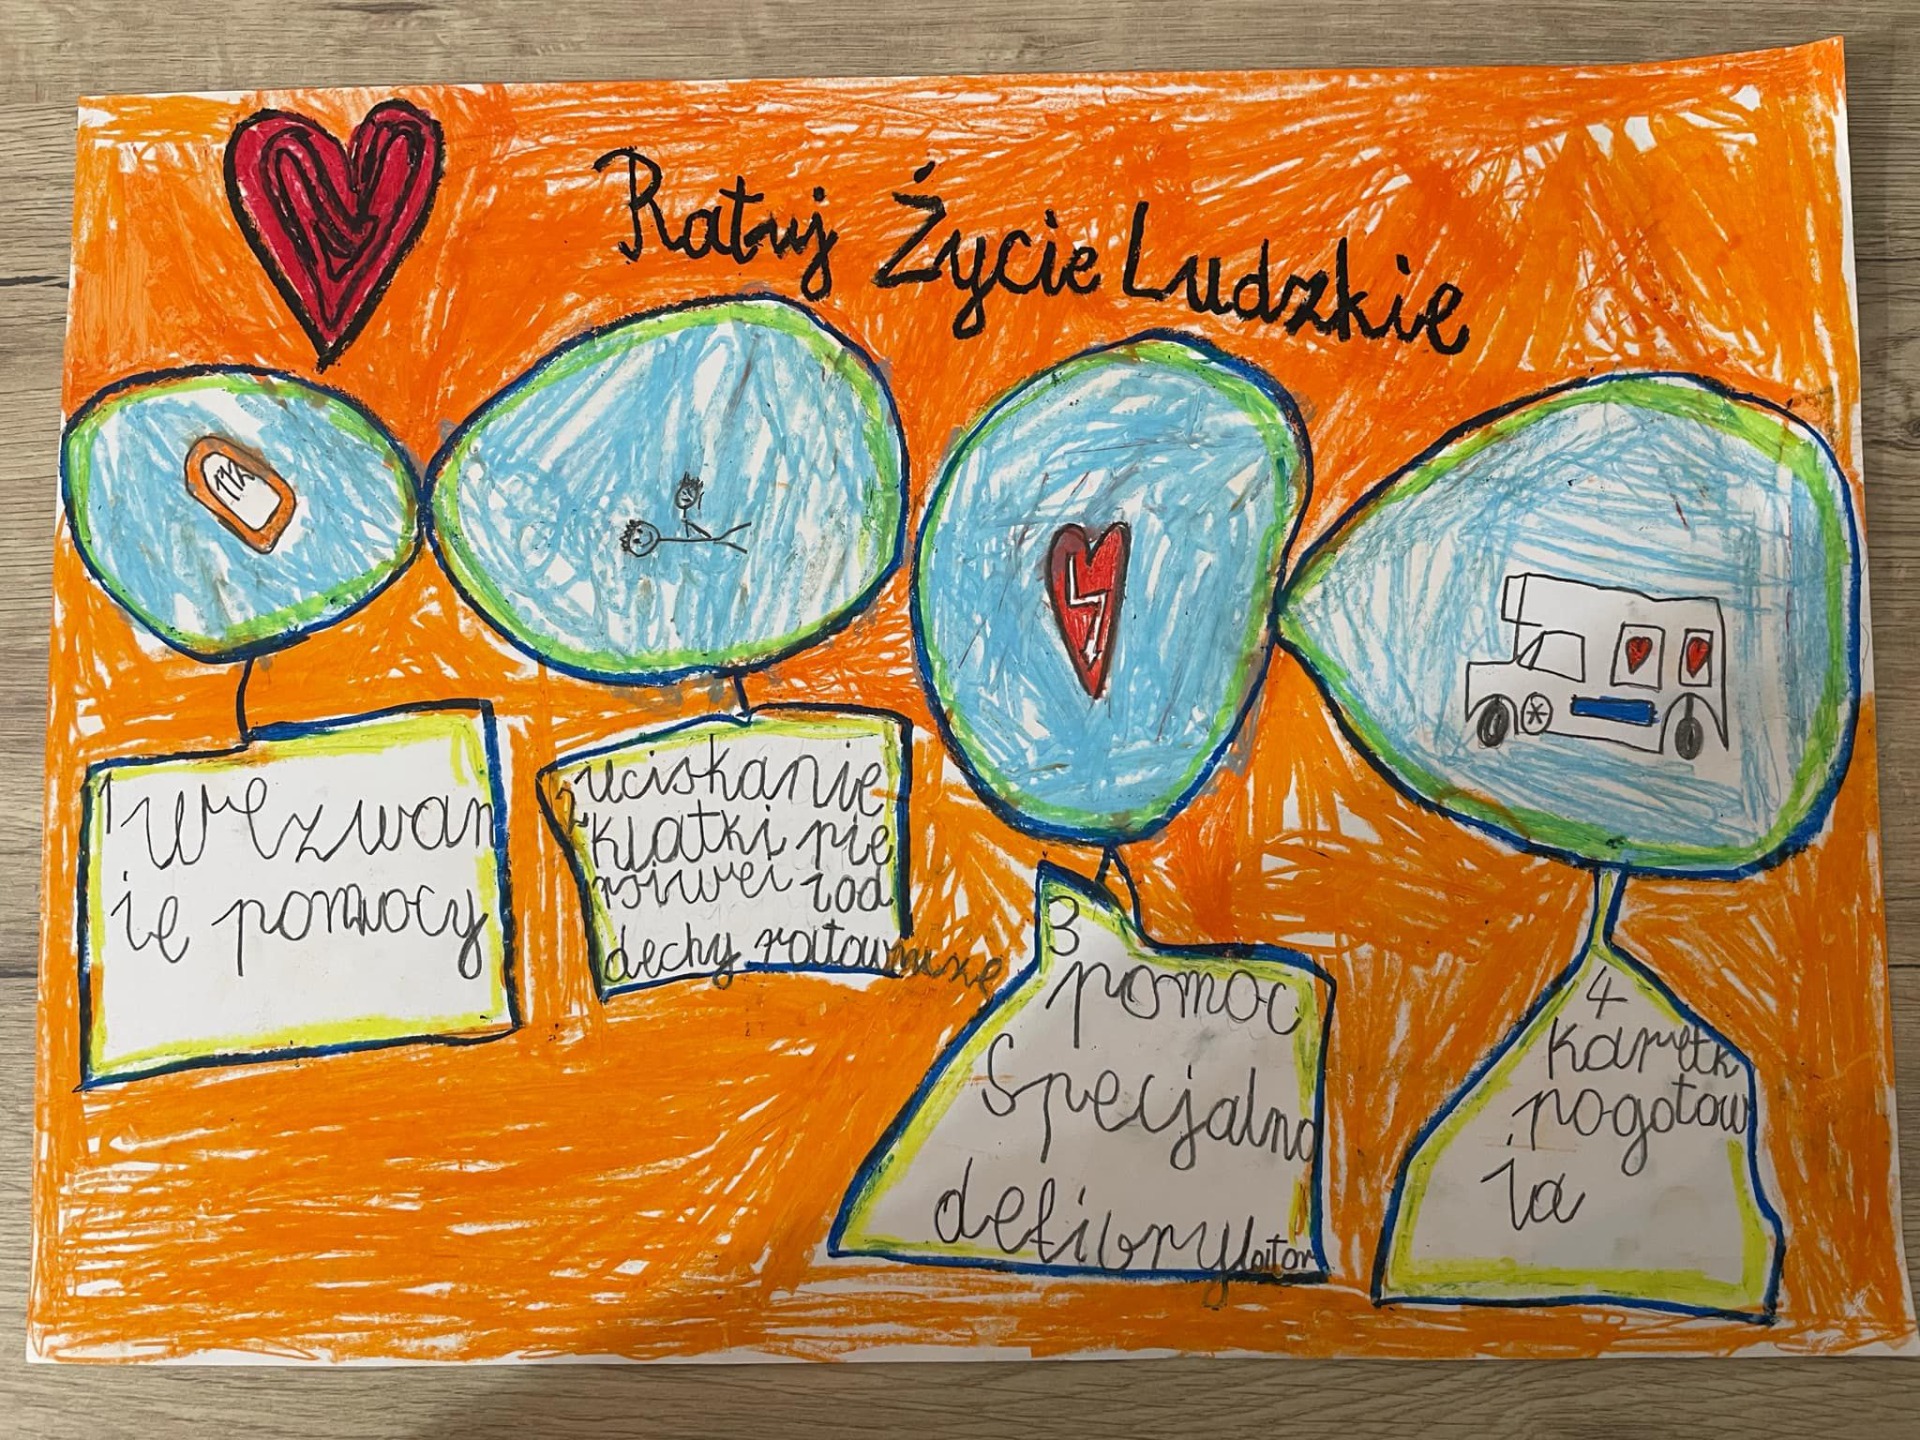 Ratuj Życie Ludzkie
112
1 Wezwan
ie pomocy
2 uciskanie
klatki pie
rsiwei iod
dechy ratownixe
3
pomoc
Specjalna
defibrylator
4
karetk
pogotow
ia